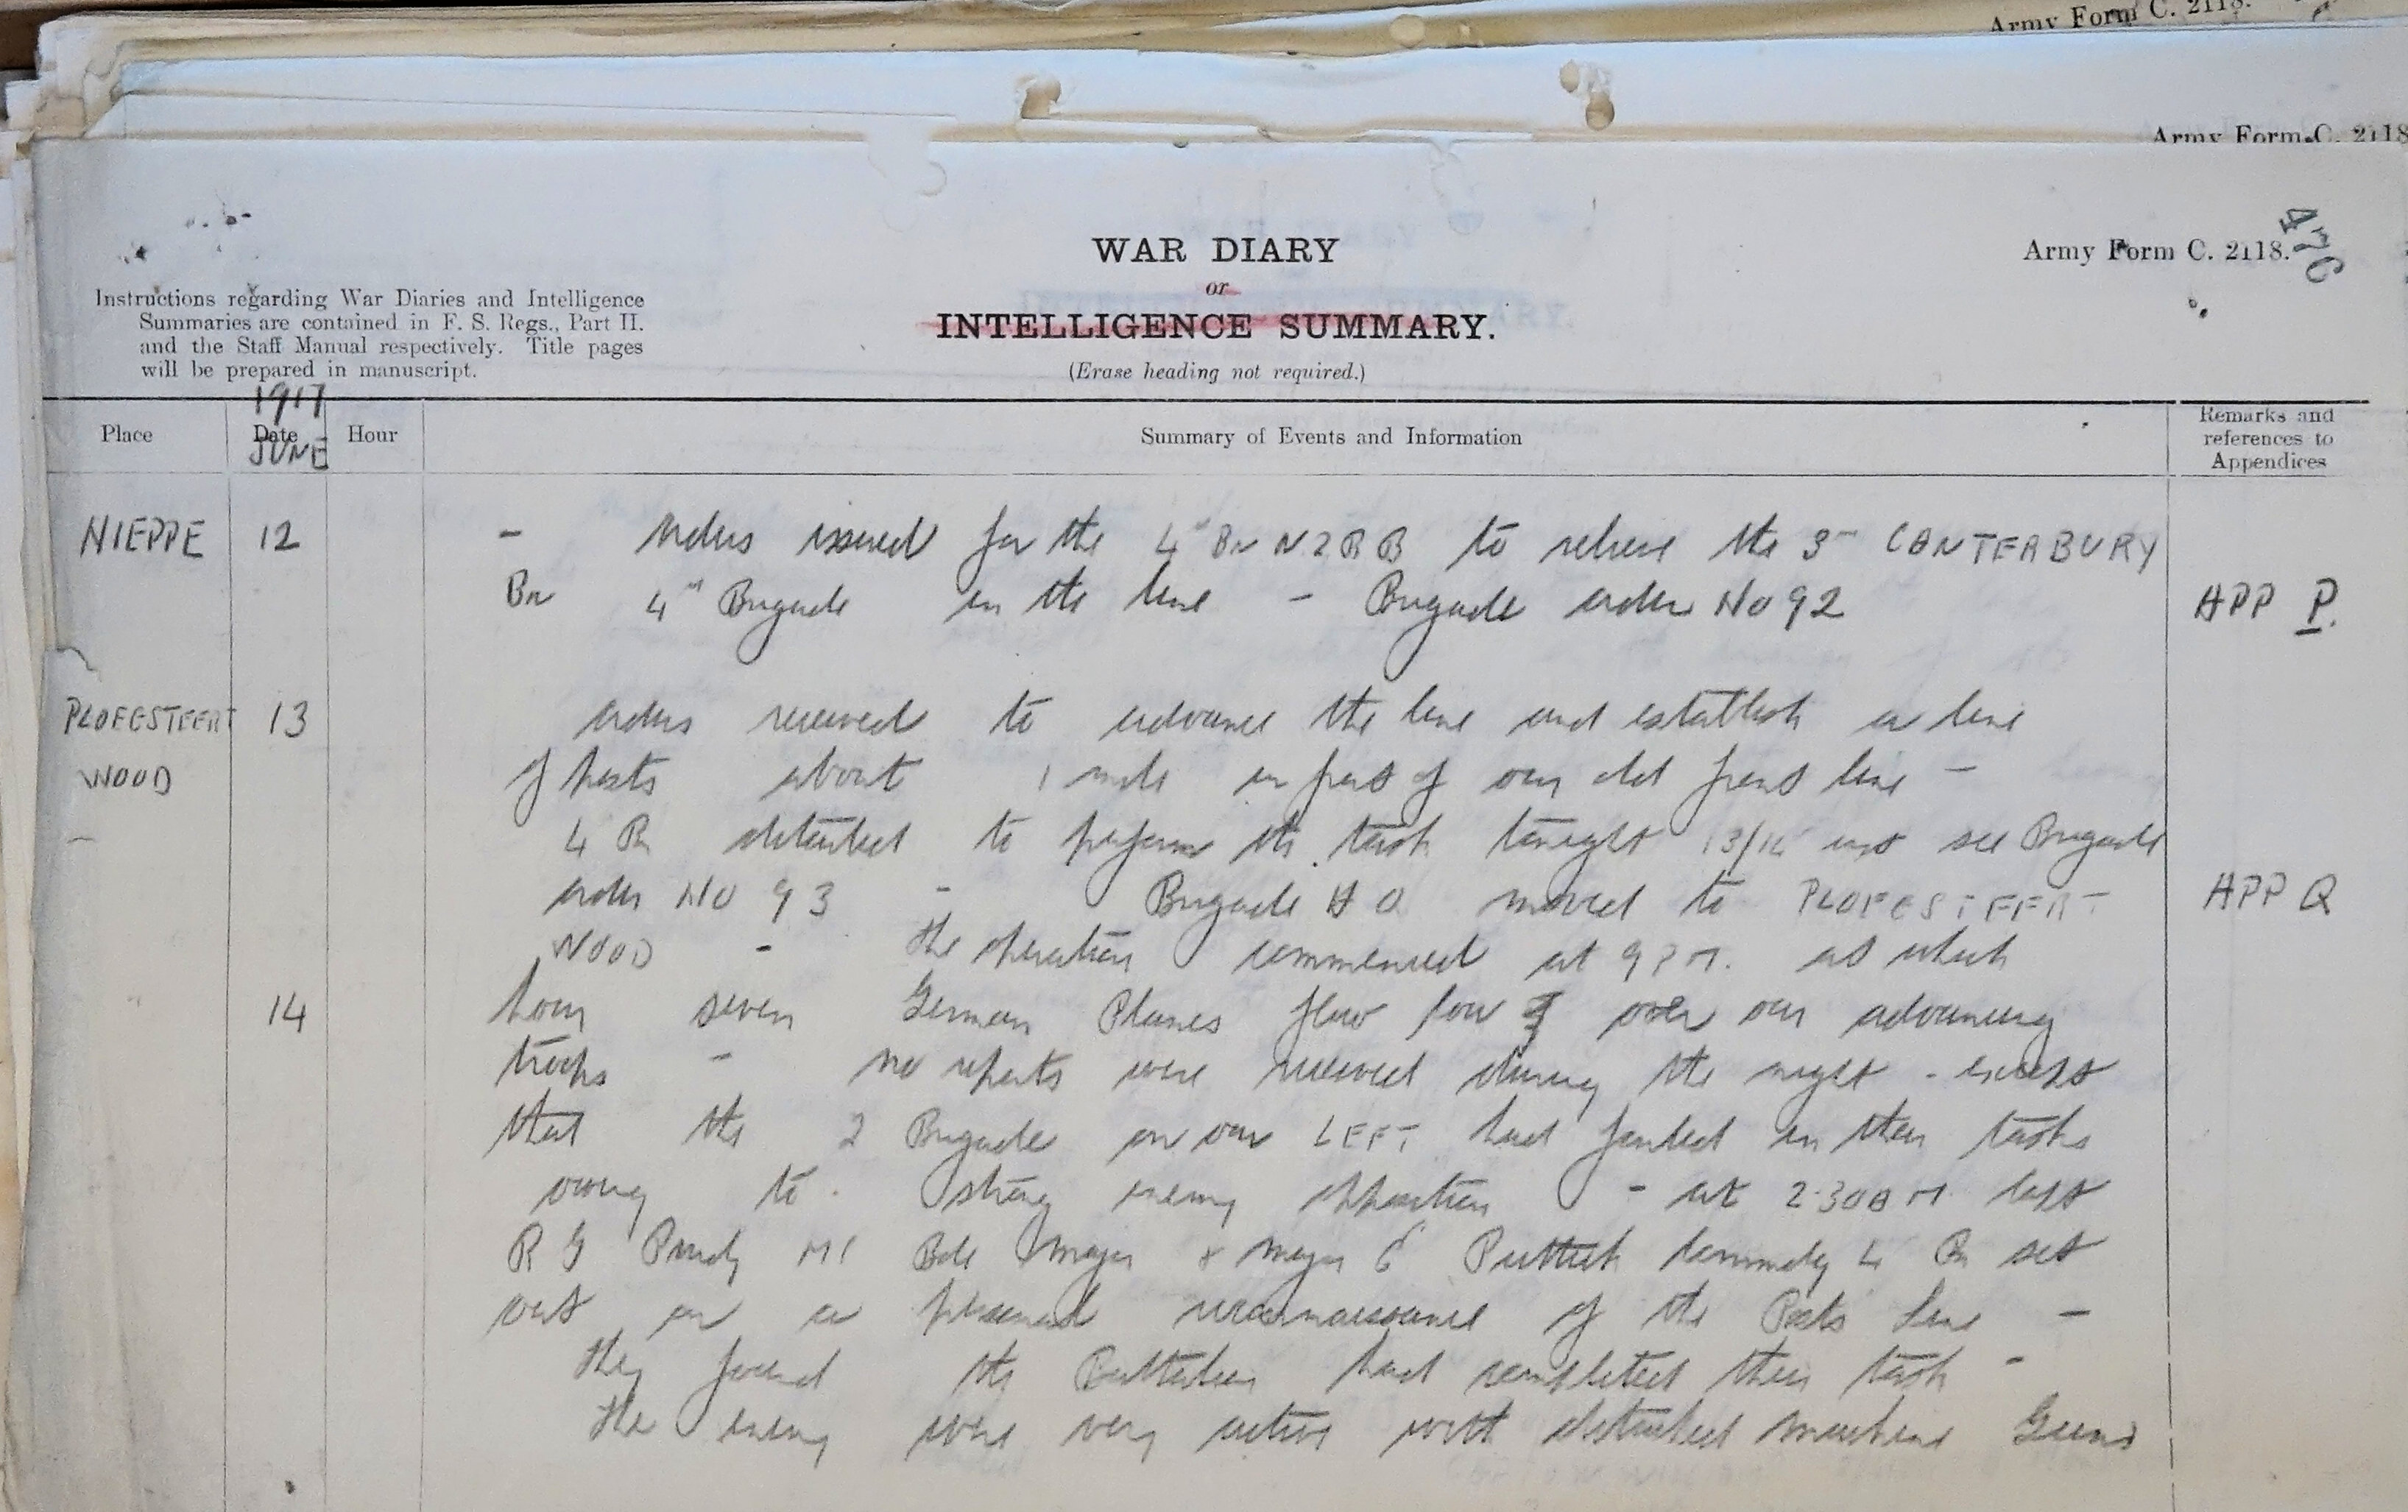 Army Form C. 2118.
Army Form C. 2118
WAR DIARY
or
INTELLIGENCE SUMMARY.
(Erase heading not required.)
Army Form C. 2118.
476
Instructions regarding War Diaries and Intelligence
Summaries are contained in F. S. Regs., Part II.
and the Staff Manual respectively. Title pages
will be prepared in manuscript.
1917
JUNE
Place Date Hour Summary of Events and Information Remarks and
references to
Appendices
NIEPPE 12 - orders issued for the 4th Bn NZRB to relieve the 3rd CANTERBURY
Bn 4th Brigade in the line - Brigade order No 92 APP P.
PLOEGSTEERT 13 orders received to advance the line and establish a line
WOOD of posts about 1 mile in front of our old front line -
- 4 Bn detailed to perform the task tonight 13/14 inst see Brigade
order No 93 - Brigade HQ moved to PLOEGSTEERT APP Q
WOOD - the operation commenced at 9 PM. at which
14 hour seven German Planes flew low over our advancing
troops - no reports were received during the night - except
that the 2 Brigade on our LEFT had failed in their tasks
owing to strong enemy opposition - at 2.30 AM Capt
R G Purdy MC Bde Major & Major E Puttick 4 Bn set
out on a personal reconnaissance of the Posts line -
they found the Battalion had completed their task -
the enemy were very active with detached machine Guns